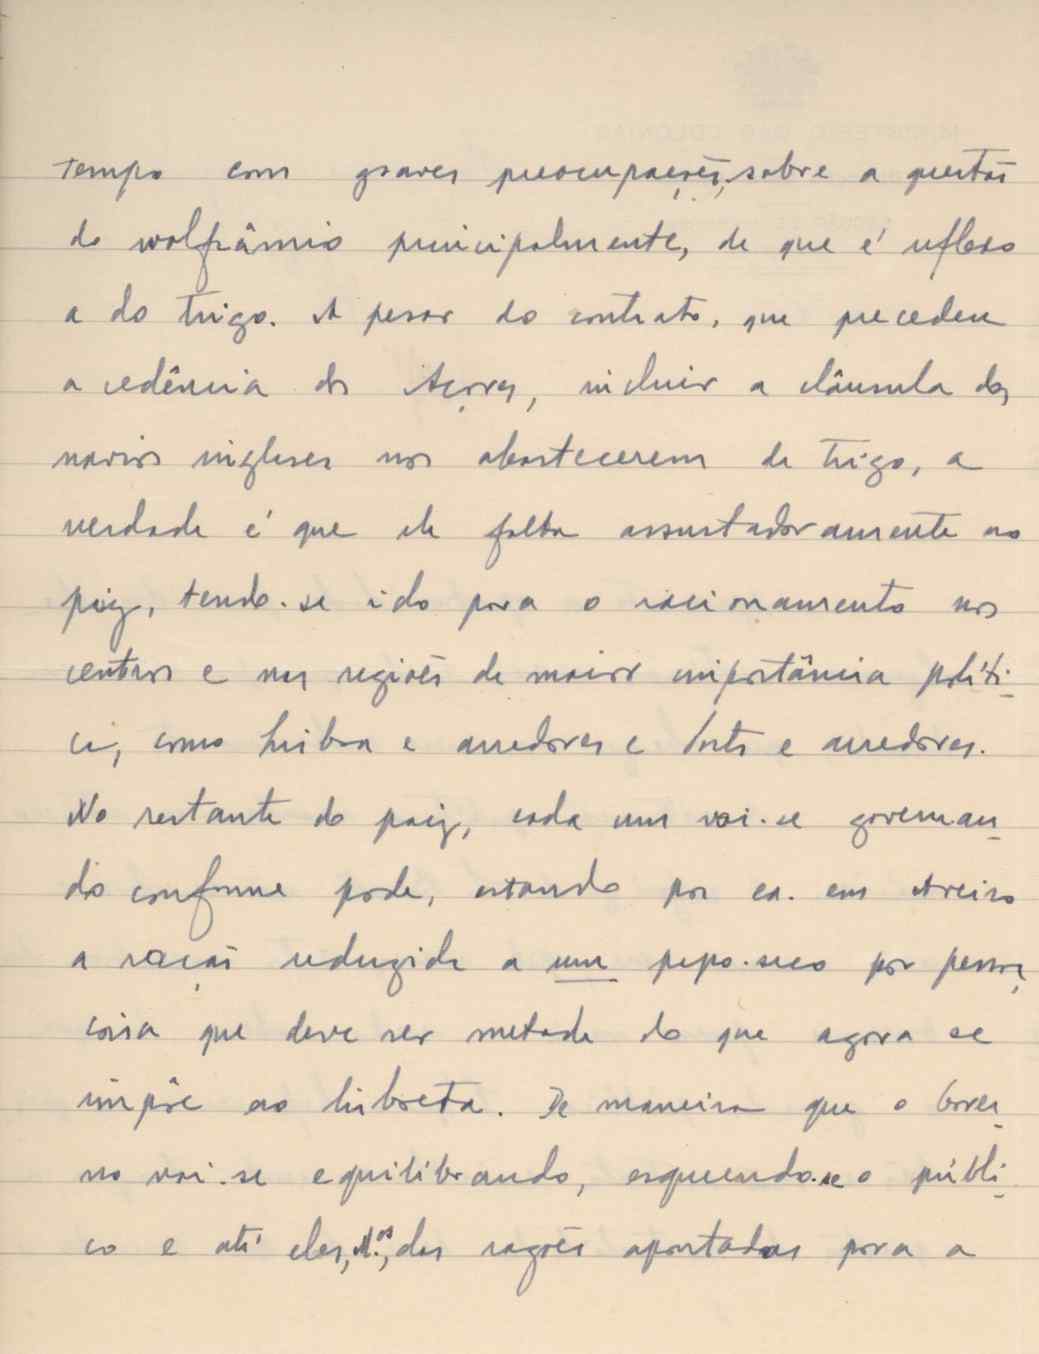 tempo com graves preocupações, sobre a questão
do wolfrâmio principalmente, de que é reflexo
a do trigo. A pesar do contrato, que precedeu
a cedência dos Açores, incluir a cláusula dos
navios ingleses nos abastecerem de trigo, a
verdade é que ele falta assustadoramente ao
paiz, tendo-se ido para o racionamento nos
centros e nas regiões de maior importância políti-
ca, como Lisboa e arredores e Porto e arredores.
No restante do paiz, cada um vai-se governan-
do conforme pode, estando por ex. em Aveiro
a ração reduzida a um papo-seco por pessoa,
coisa que deve ser metade do que agora se
impõe ao lisboeta. De maneira que o Gover-
no vai-se equilibrando, esquecendo-se o públi-
co e até eles, M.os, das razões apontadas para a